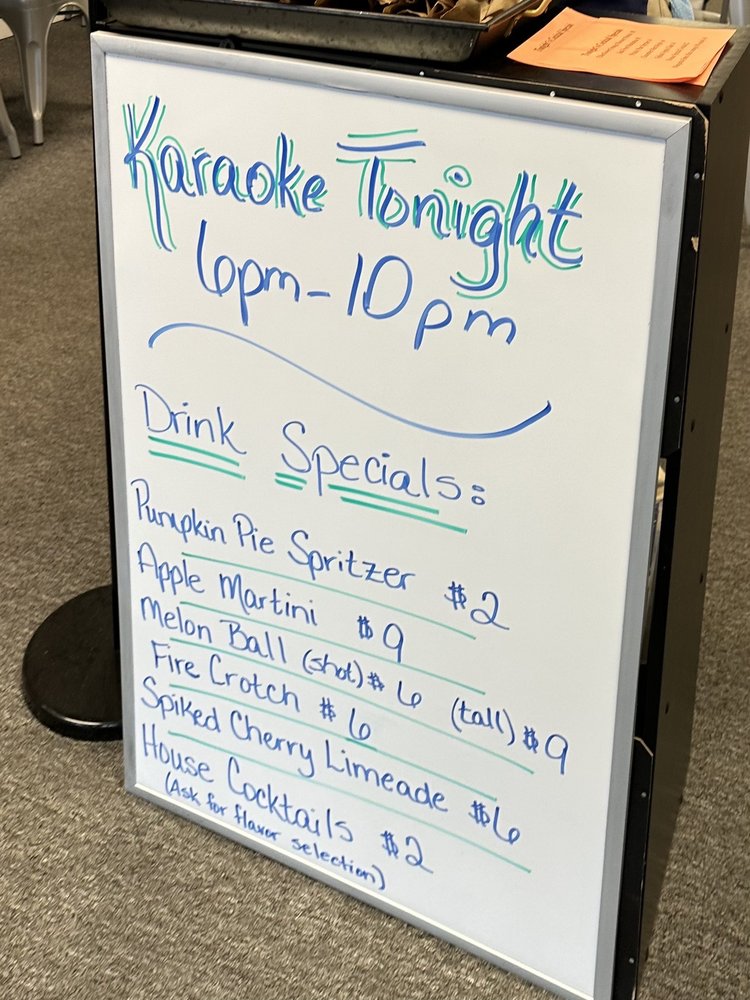 Karaoke Tonight
6pm-10pm
Drink Specials:
Pumpkin Pie Spritzer $2
Apple Martini $9
Melon Ball (shot) $6 (tall) $9
Fire Crotch $6
Spiked Cherry Limeade $6
House Cocktails $2
(Ask for flavor selection)